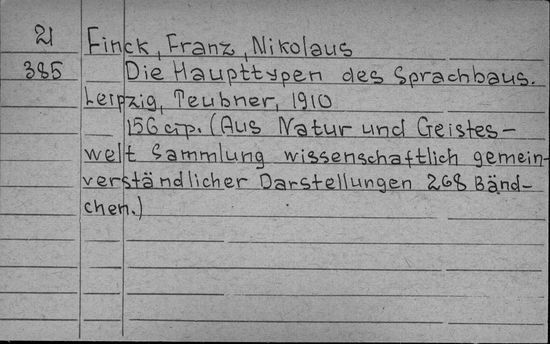 21 Finck, Franz, Nikolaus
385 Die Haupttypen des Sprachbaus.
Leipzig, Teubner, 1910
156 стр. (Aus Natur und Geistes-
welt Sammlung wissenschaftlich gemein-
verständlicher Darstellungen 268 Bänd-
chen.)